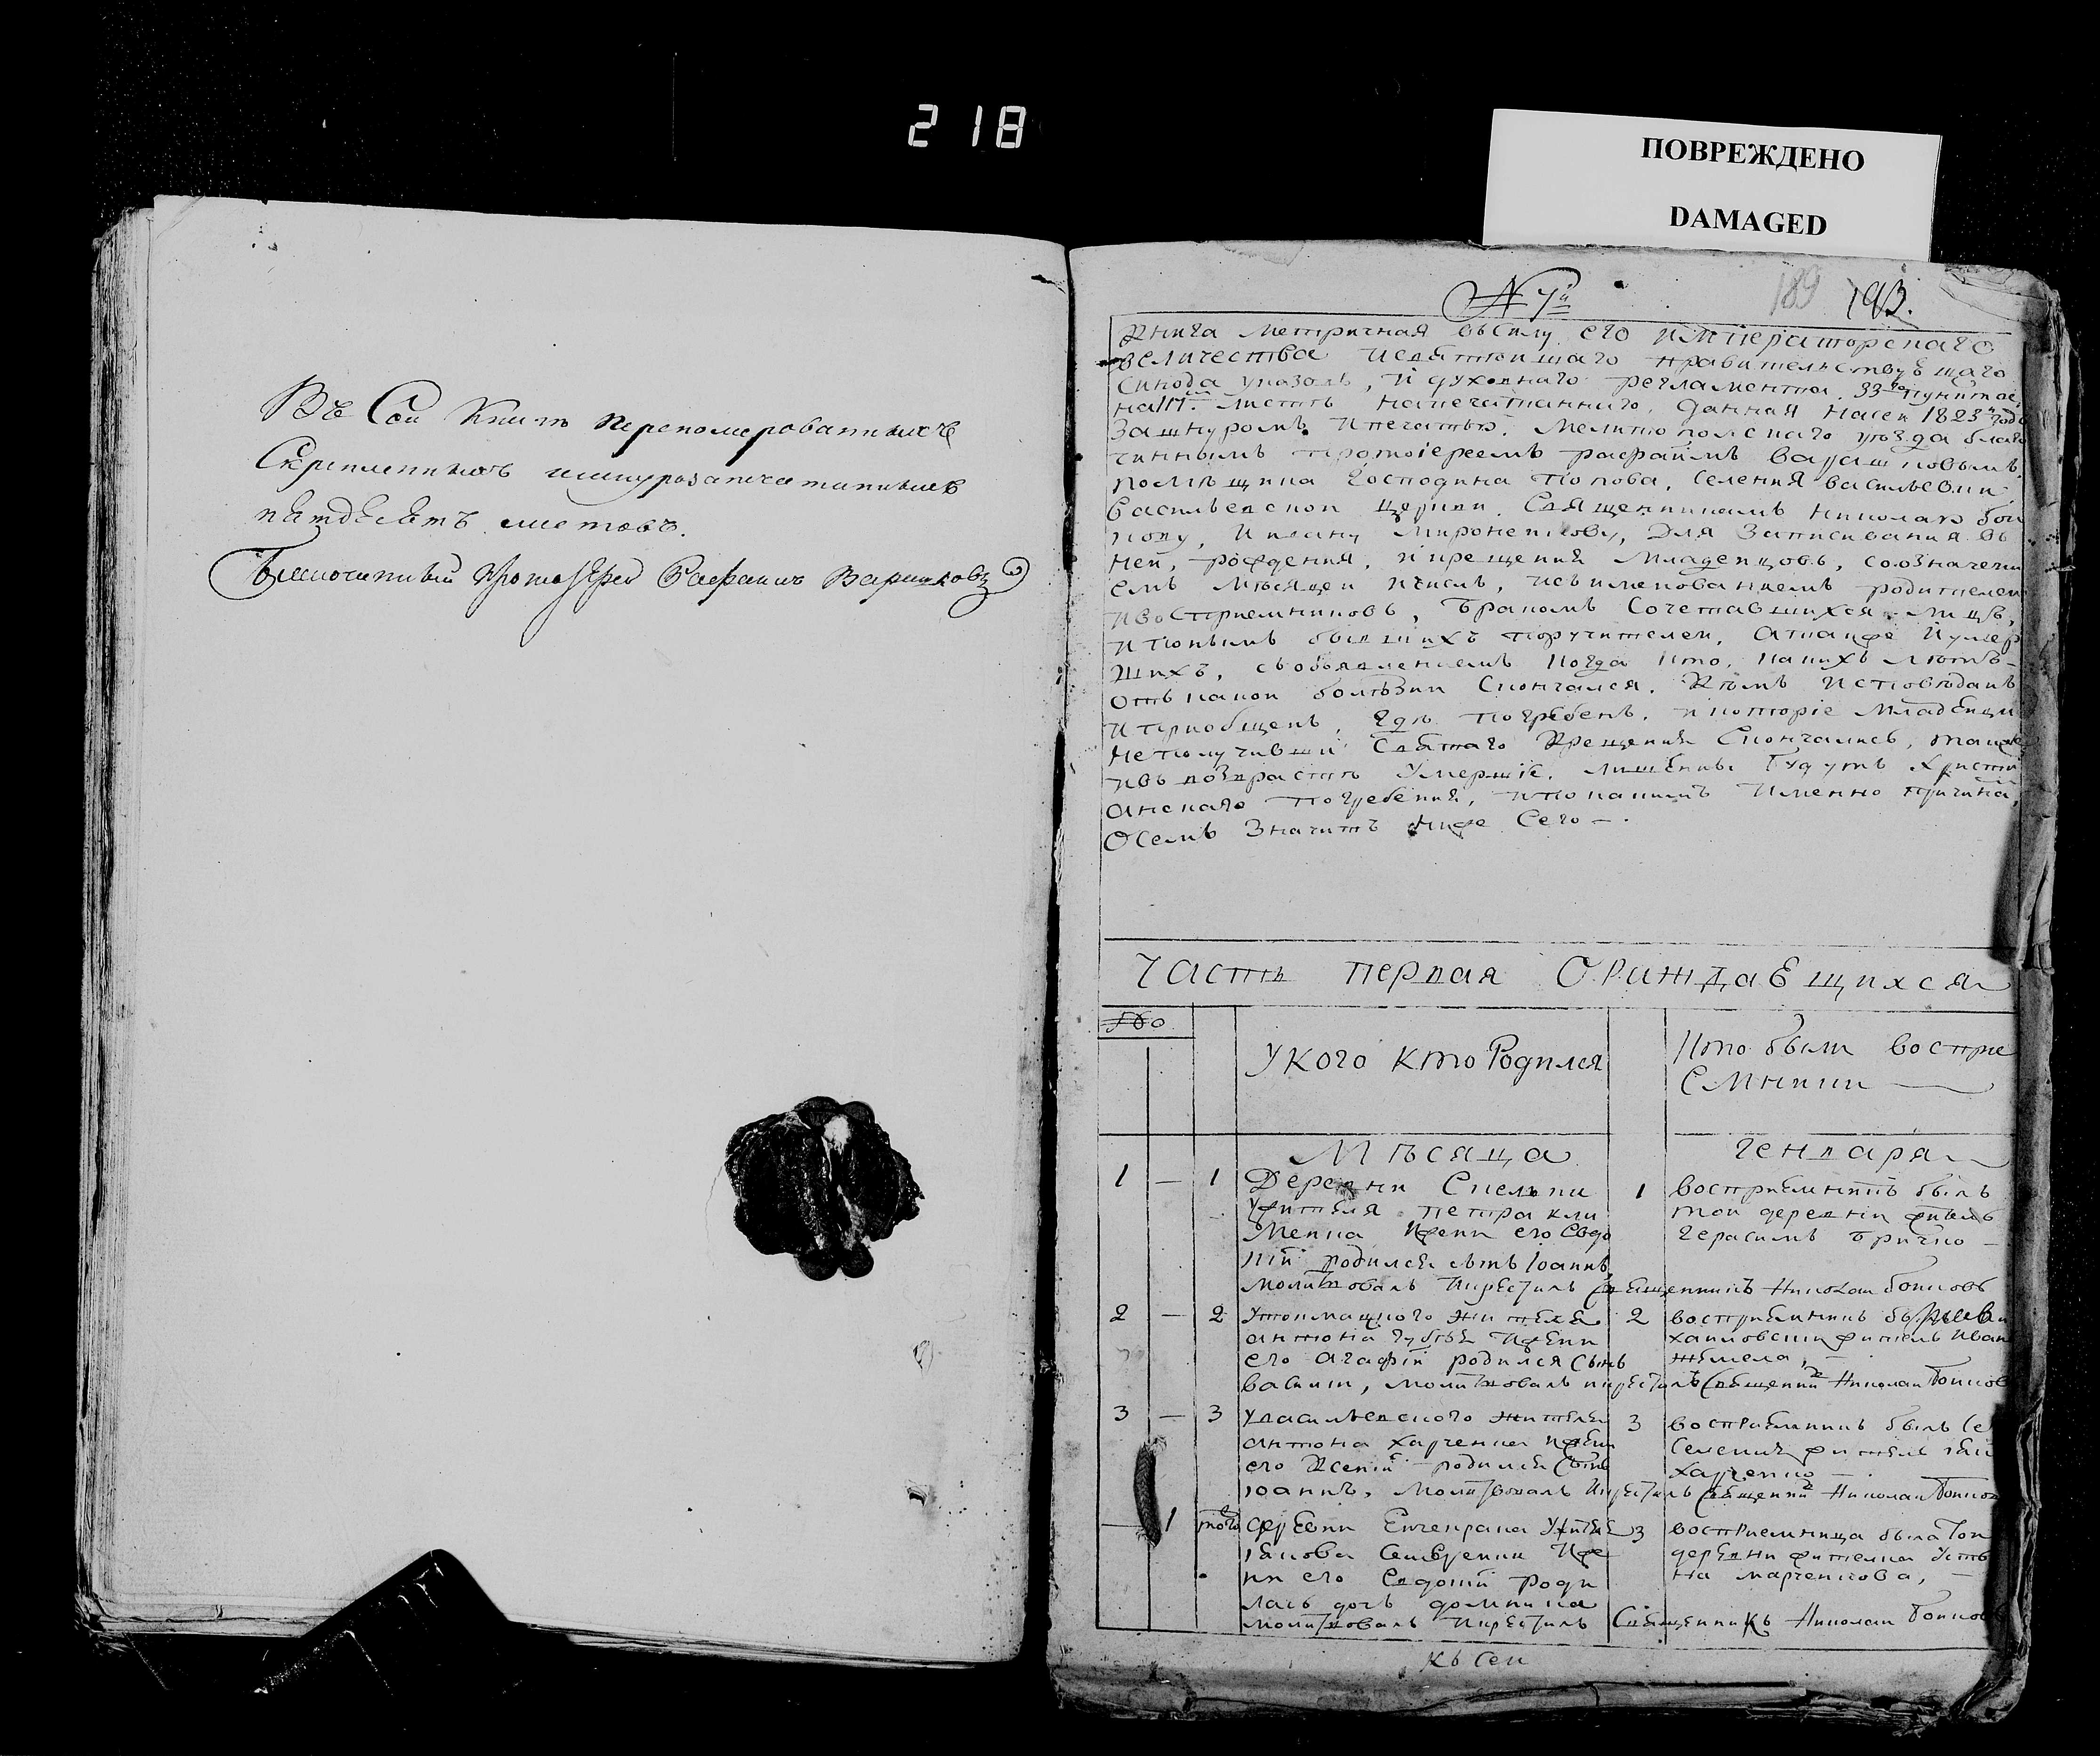 218
ПОВРЕЖДЕНО
DAMAGED
Въ Сей Книге перенумерованныхъ
Скрепленныхъ шнурозапечатанныхъ
пятдесятъ листовъ.
Благочинный Протоиерей
189
Книга Метричная въсилу его императорскаго
величества исвятейшаго правительствующаго
Синода указовъ, и духовнаго регламента 33го пункта
листъ напечатаннаго, данная насей 1823й годъ
Зашнуромъ ипечатью. Мелитопольскаго уезда благо
чиннымъ протоіереемъ
помѣщика Господина Попова, селения Васильевки
Васильевской церкви. Священникамъ Николаю Бой
кову, Для Записивания въ
ней, рождения, икрещения Младенцовъ, созначени
емъ мѣсяцей ичислъ, исъименованиемъ родителей
ивосприемниковъ, Бракомъ Сочетавшихся лицъ,
бывшихъ поручителей, Атакже Иумер
шихъ, собъявлениемъ когда кто, какихъ лѣтъ
отъ какой болѣзни Скончался. Кѣмъ Исповѣданъ
иприобщенъ, Где погребенъ, и которіе Младенци
неполучивши Святаго Крещения Скончались, также
ивъ возрастѣ Умершіе, лишены Будутъ Христи
анскаго погребения, ипокакимъ Именно причина
Осемъ Значитъ ниже Сего —.
Часть первая Ораждаещихся
Укого кто Родился
Кто были восприе
емники
Мѣсяца
Генваря
1 — 1 Деревни
жителя петра кли
менка Ижени его Евдо
кіи родился сынъ Іоаннъ,
молитвовалъ Икрестилъ Священникъ Николай Бойковъ
1 восприемникъ былъ
той деревни житель
Герасимъ
2 — 2 жителя
антона Ижени
его агафіи родился сынъ
василій, молитвовалъ икрестилъ Священникъ Николай Бойков
2 восприемникъ былъ
хайловский житель Иван
3 — 3 Увасильевского жителя
антона харченка ижени
его Ксеніи родился сынъ
іоаннъ, Молитвовалъ Икрестилъ Священникъ Николай Бойков
3 восприемникъ былъ
селения житель
харченко —
1 того деревни жителя
Якова Иже
ни его Евдокіи роди
лась дочь домника
молитвовалъ Икрестилъ Священникъ Николай Бойков
3 восприемница была той
деревни жителка Усти
на марченкова, —